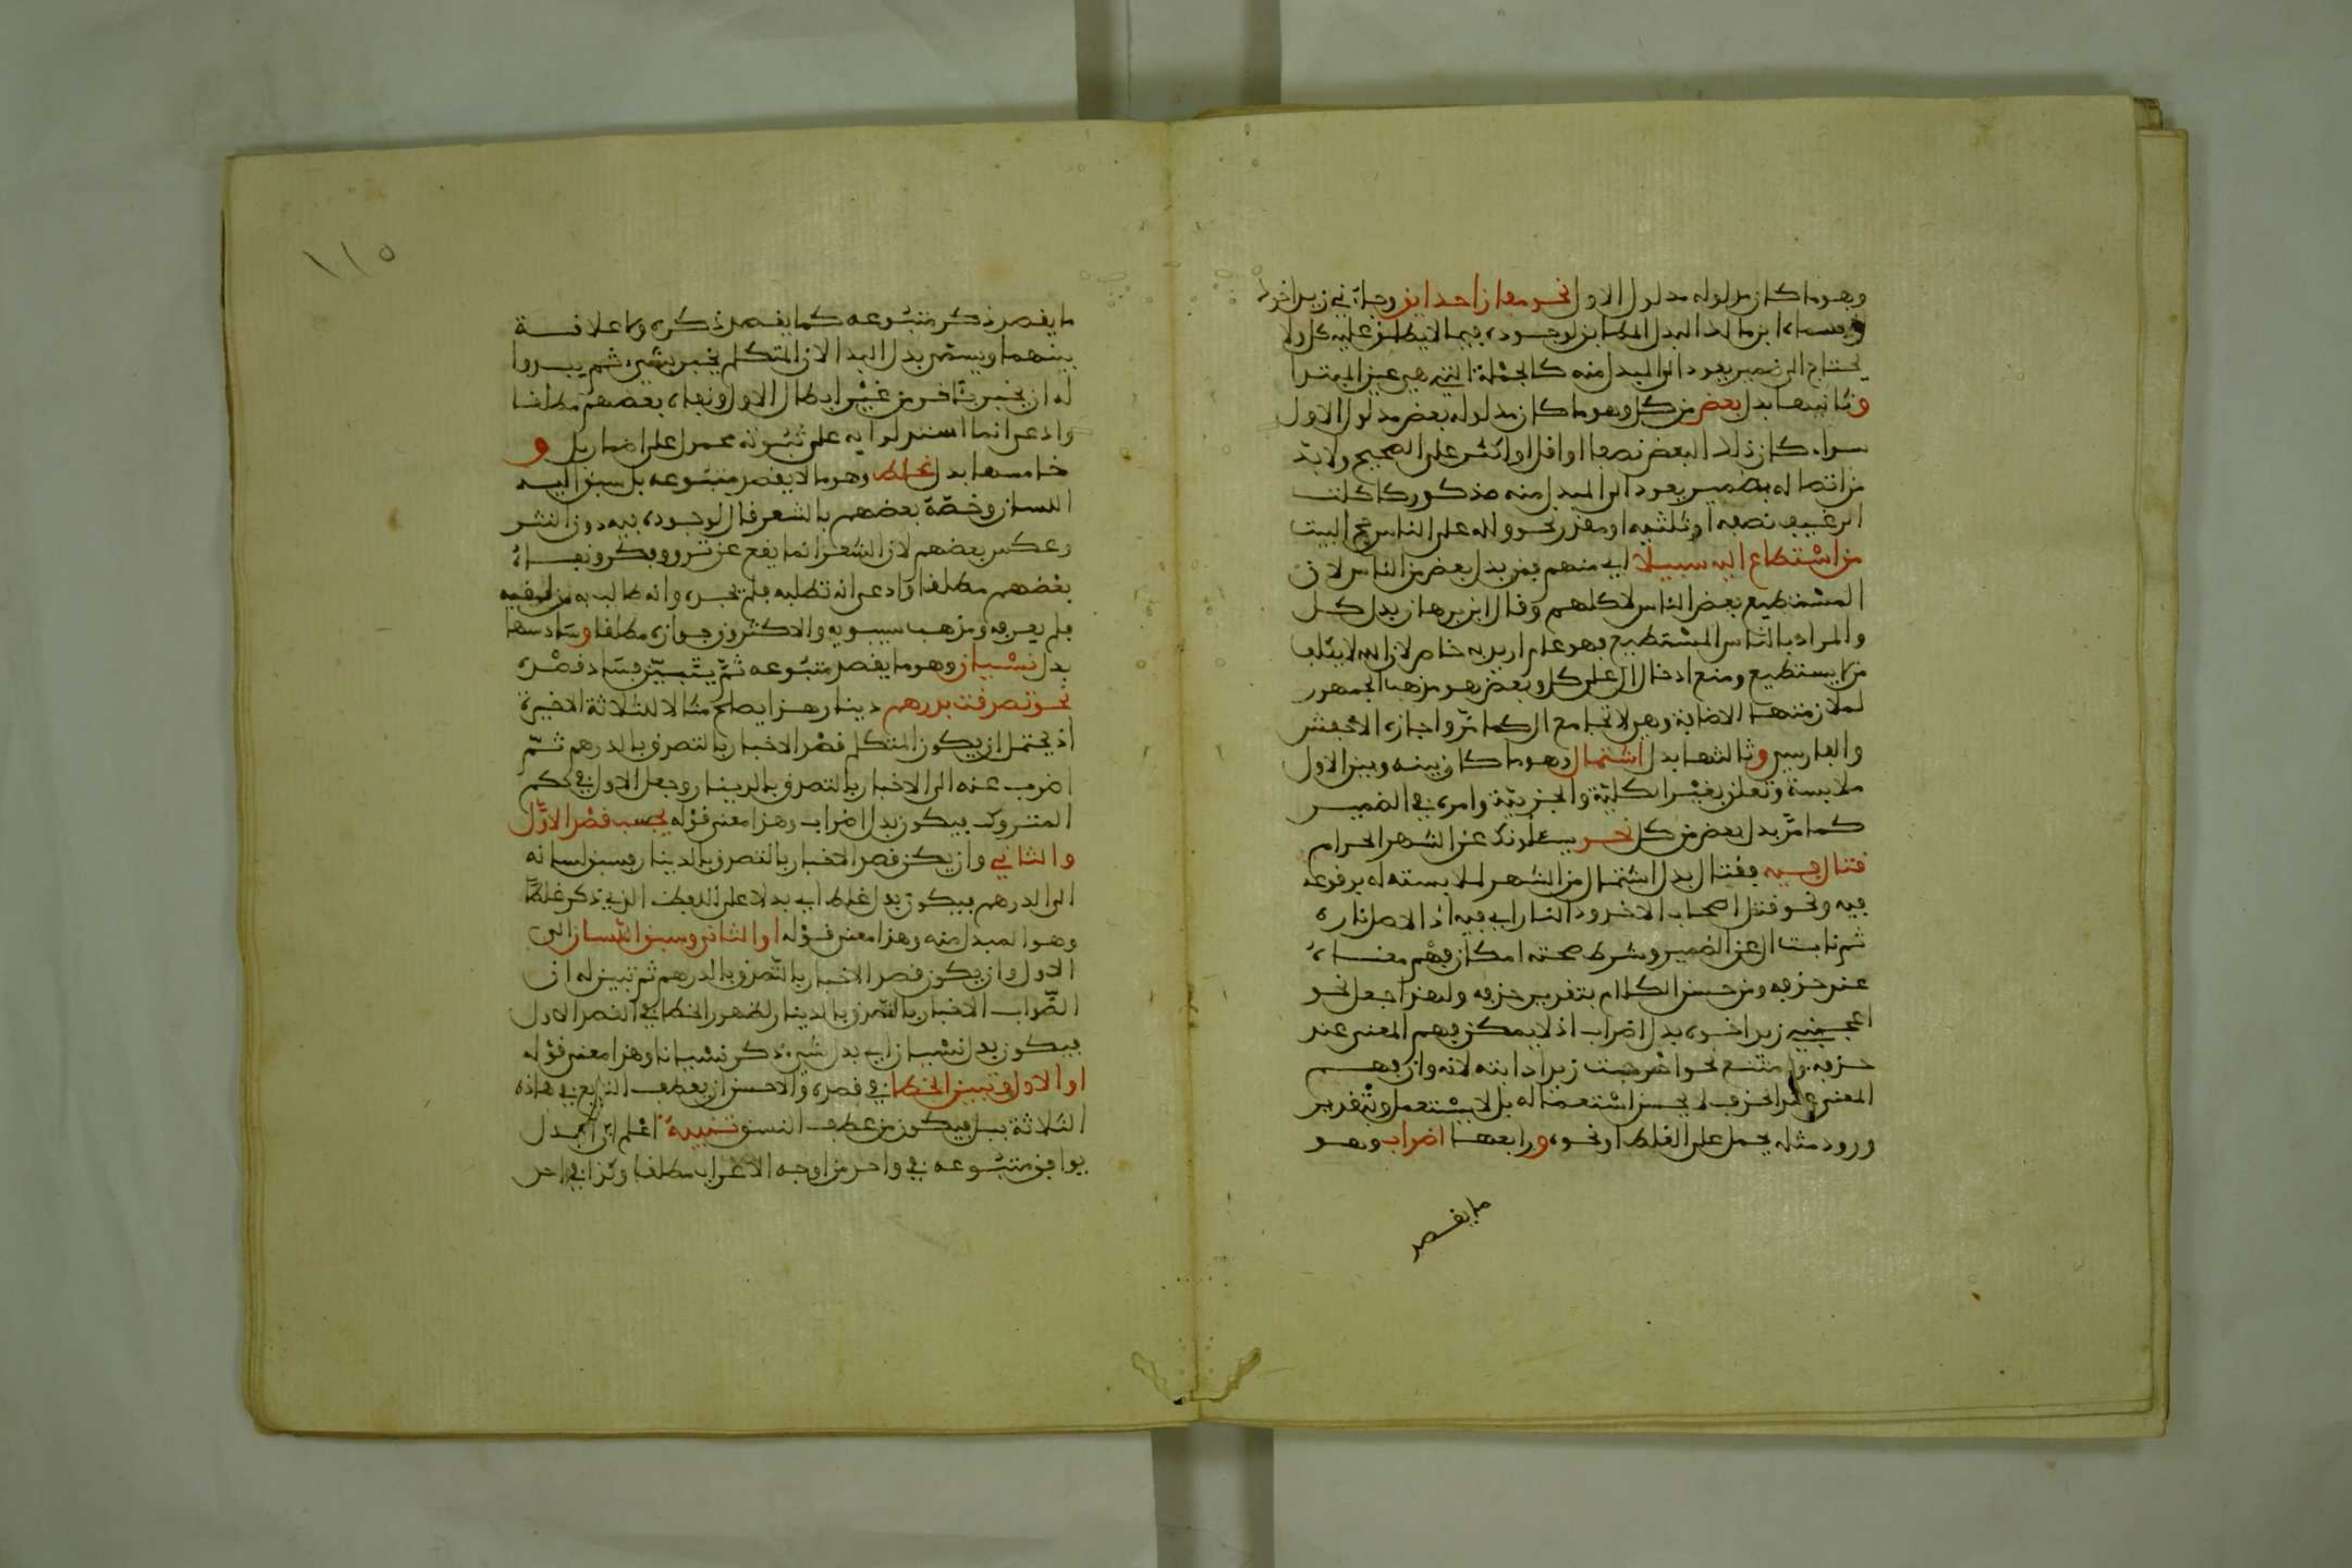 وهو ما كان مدلوله مدلول الاول نحو مفازا حدايق وجاءني زيد اخوك
وسماه ابن مالك البدل المطابق لوجوده فيما لا يطلق عليه كل ولا
يحتاج الى ضمير يعود الى المبدل منه كالجملة التي هي عين المبتدا
وثانيها بدل بعض من كل وهو ما كان مدلوله بعض مدلول الاول
سواء كان ذلك البعض نصفا او اقل او اكثر على الصحيح ولا بد
من اتصاله بضمير يعود الى المبدل منه مذكور كاكلت
الرغيف نصفه او ثلثيه او مقدر نحو ولله على الناس حج البيت
من استطاع اليه سبيلا اي منهم فمن بدل بعض من الناس لان
المستطيع بعض الناس لا كلهم وقال ابن برهان بدل كل
والمراد بالناس المستطيع فهو عام اريد به خاص لان الله لا يكلف
من لا يستطيع ومنع ادخال ال على كل وبعض هو مذهب الجمهور
لملازمتهما الاضافة وهي لا تجامع ال كما مر واجازه الاخفش
والفارسي وثالثها بدل اشتمال وهو ما كان بينه وبين الاول
ملابسة وتعلق بغير الكلية والجزيية وامره في الضمير
كما مر بدل بعض من كل نحو يسألونك عن الشهر الحرام
قتال فيه فقتال بدل اشتمال من الشهر لملابسته له بوقوعه
فيه ونحو قتل اصحاب الاخدود النار اي فيه اذ الاصل ناره
ثم نابت ال عن الضمير وشرط صحته امكان فهم معناه
عند حذفه ومن حسن الكلام بتقدير حذفه ولهذا جعل نحو
اعجبني زيد اخوه بدل اضراب اذ لا يمكن فهم المعنى عند
حذفه وامتنع نحو اسرجت زيدا دابته لانه وان فهم
المعنى على الحذف لا يحسن استعماله بل لا يستعمل وبتقدير
ورود مثله يحمل على الغلط او نحوه ورابعها اضراب وهو
ما يقصد
١١٥
ما يقصد ذكر متبوعه كما يقصد ذكره ولا علاقة
بينهما ويسمى بدل البدا لان المتكلم يخبر بشيء ثم يبدوا
له ان يخبر بآخر من غير ابطال الاول ونفاه بعضهم مطلقا
وادعى انما استدلوا به على ثبوته محمول على اضمار بل و
خامسها بدل غلط وهو ما لا يقصد متبوعه بل سبق اليه
اللسان وخصه بعضهم بالشعر قال لوجوده فيه دون النثر
وعكس بعضهم لان الشعر انما يقع عن ترو وفكر ونفاه
بعضهم مطلقا وادعى انه تطلبه فلم يجده وانه طالب به من لقيه
فلم يعرفه ومذهب سيبويه والاكثرون جوازه مطلقا وسادسها
بدل نسيان وهو ما يقصد متبوعه ثم يتبين فساد قصده
نحو تصدقت بدرهم دينار هذا يصلح مثالا للثلاثة الاخيرة
اذ يحتمل ان يكون المتكلم قصد الاخبار بالتصدق بالدرهم ثم
اضرب عنه الى الاخبار بالتصدق بالدينار وجعل الاول في حكم
المتروك فيكون بدل اضراب وهذا معنى قوله بحسب قصد الاول
والثاني وان يكن قصد الاخبار بالتصدق بالدينار فسبق لسانه
الى الدرهم فيكون بدل غلط اي بدلا على اللفظ الذي ذكر غلطا
وهو المبدل منه وهذا معنى قوله او الثاني وسبق اللسان الى
الاول وان يكون قصد الاخبار بالتصدق بالدرهم ثم تبين له ان
الصواب الاخبار بالتصدق بالدينار لظهور الخطا في القصد الاول
فيكون بدل نسيان اي بدل شيء ذكر نسيانا وهذا معنى قوله
او الاول وتبين الخطا في قصده والاحسن ان يعطف التابع في هاذه
الثلاثة ببل فيكون من عطف النسق تنبيه اعلم ان البدل
يوافق متبوعه في واحد من اوجه الاعراب مطلقا وكذا في احد